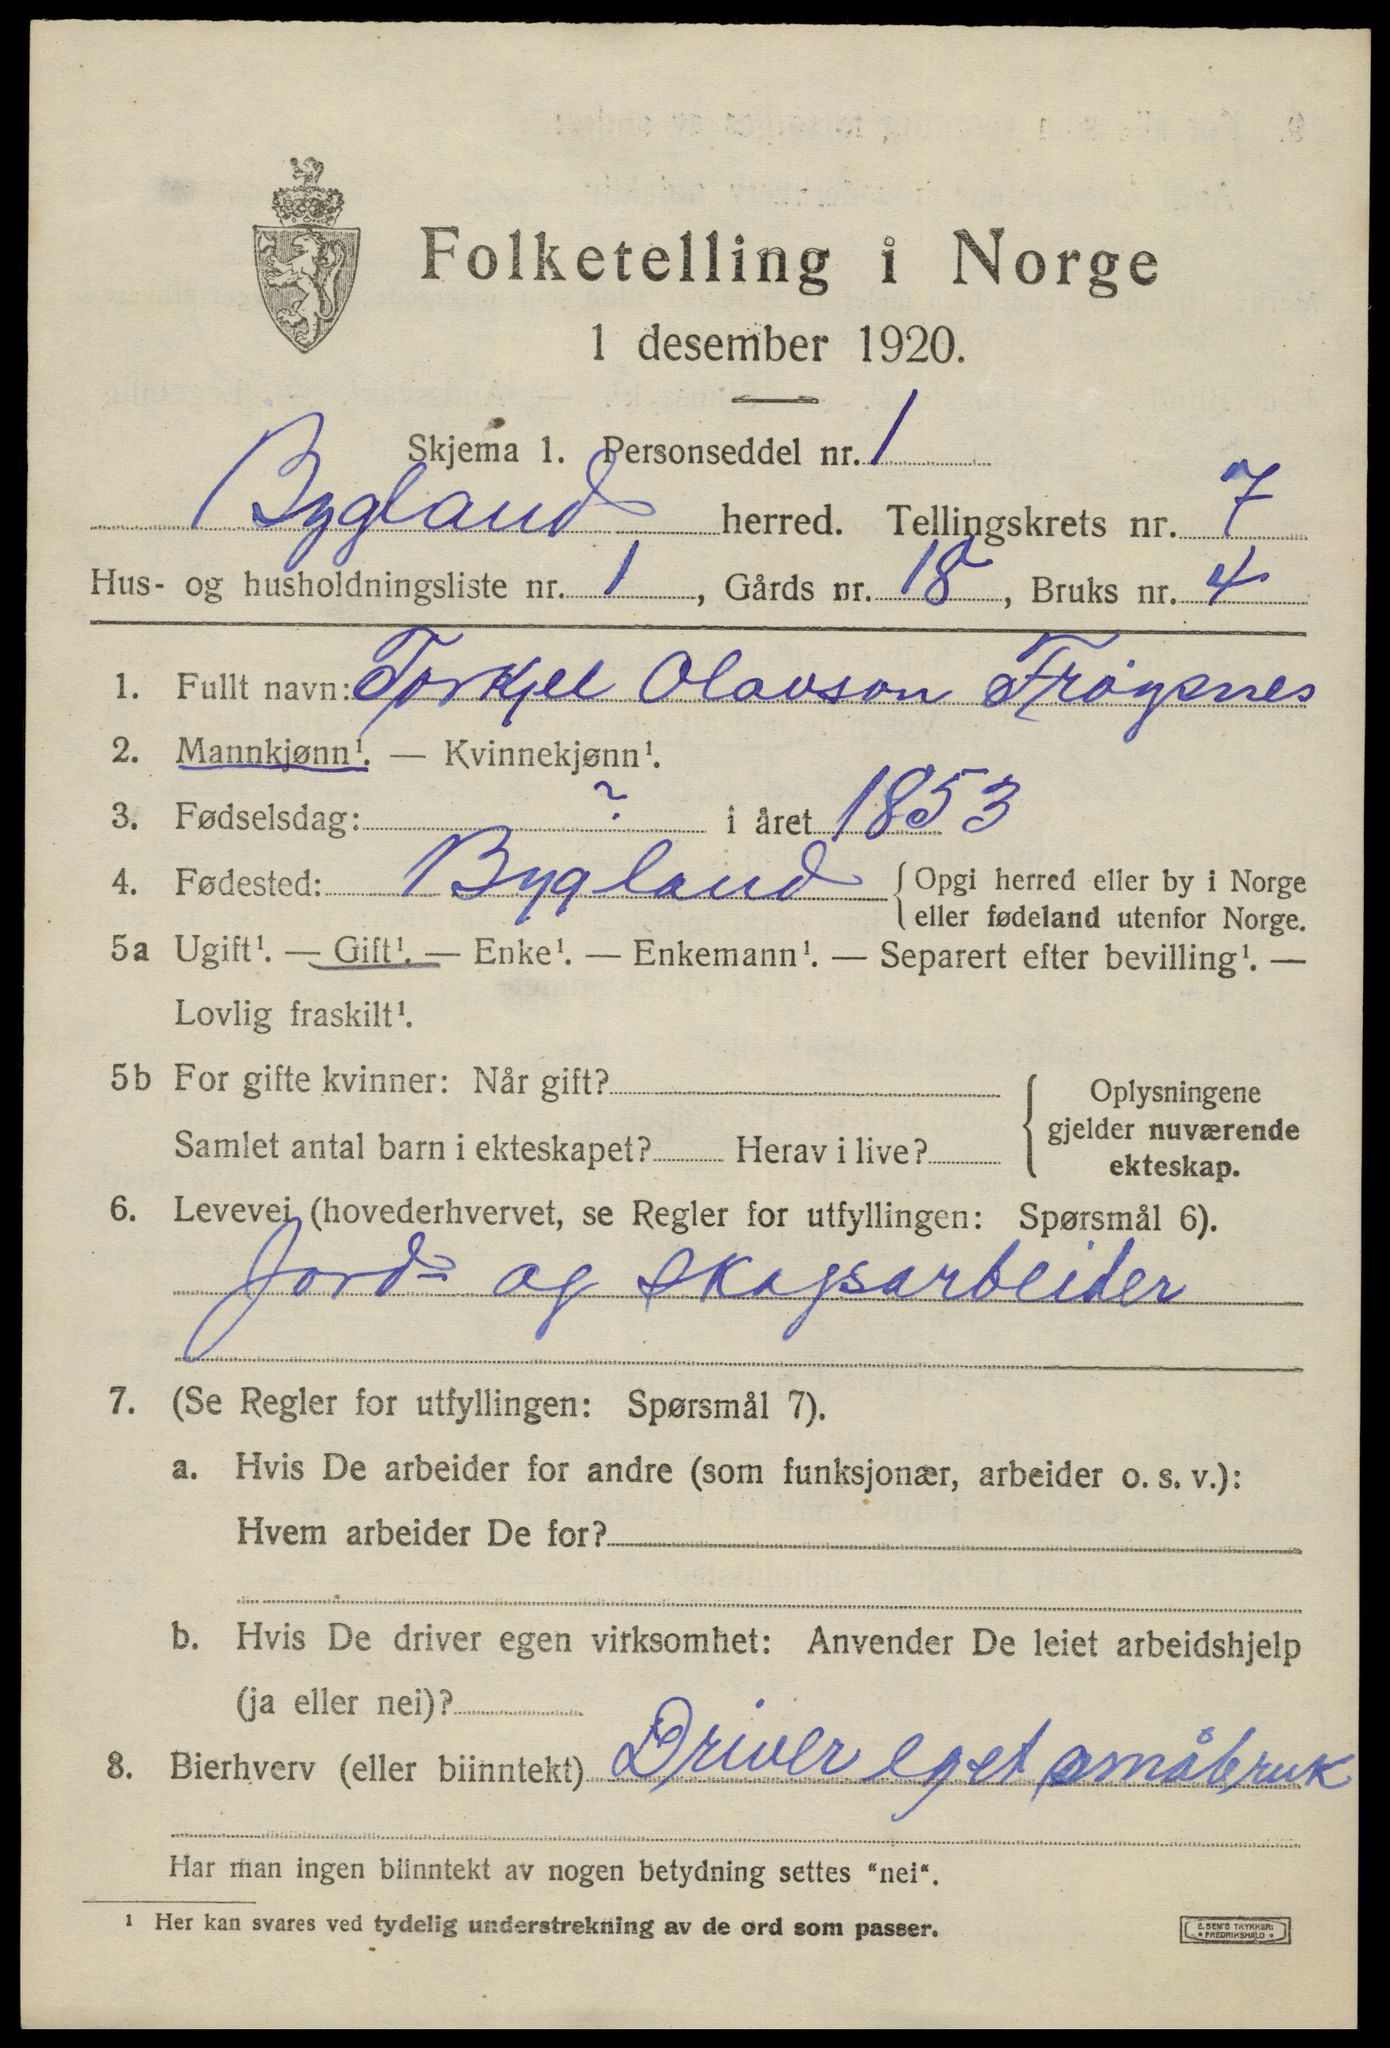 Folketelling i Norge
1 desember 1920.
Skjema 1. Personseddel nr. 1
Bygland herred. Tellingskrets nr. 7
Hus- og husholdningsliste nr. 1, Gårds nr. 18, Bruks nr. 4
1. Fullt navn: Torkjel Olavson Frøysnes
2. Mannkjønn¹. — Kvinnekjønn¹.
3. Fødselsdag: ? i året 1853
4. Fødested: Bygland { Opgi herred eller by i Norge
eller fødeland utenfor Norge.
5a Ugift¹. — Gift¹. — Enke¹. — Enkemann¹. — Separert efter bevilling¹. —
Lovlig fraskilt¹.
5b For gifte kvinner: Når gift?
Samlet antal barn i ekteskapet? Herav i live?
{ Oplysningene
gjelder nuværende
ekteskap.
6. Levevei (hovederhvervet, se Regler for utfyllingen: Spørsmål 6).
Jord- og skogsarbeider
7. (Se Regler for utfyllingen: Spørsmål 7).
a. Hvis De arbeider for andre (som funksjonær, arbeider o. s. v.):
Hvem arbeider De for?
b. Hvis De driver egen virksomhet: Anvender De leiet arbeidshjelp
(ja eller nei)?
8. Bierhverv (eller biinntekt) Driver eget småbruk
Har man ingen biinntekt av nogen betydning settes "nei".
¹ Her kan svares ved tydelig understrekning av de ord som passer.
E. SEM'S TRYKKERI
• FREDRIKSHALD •